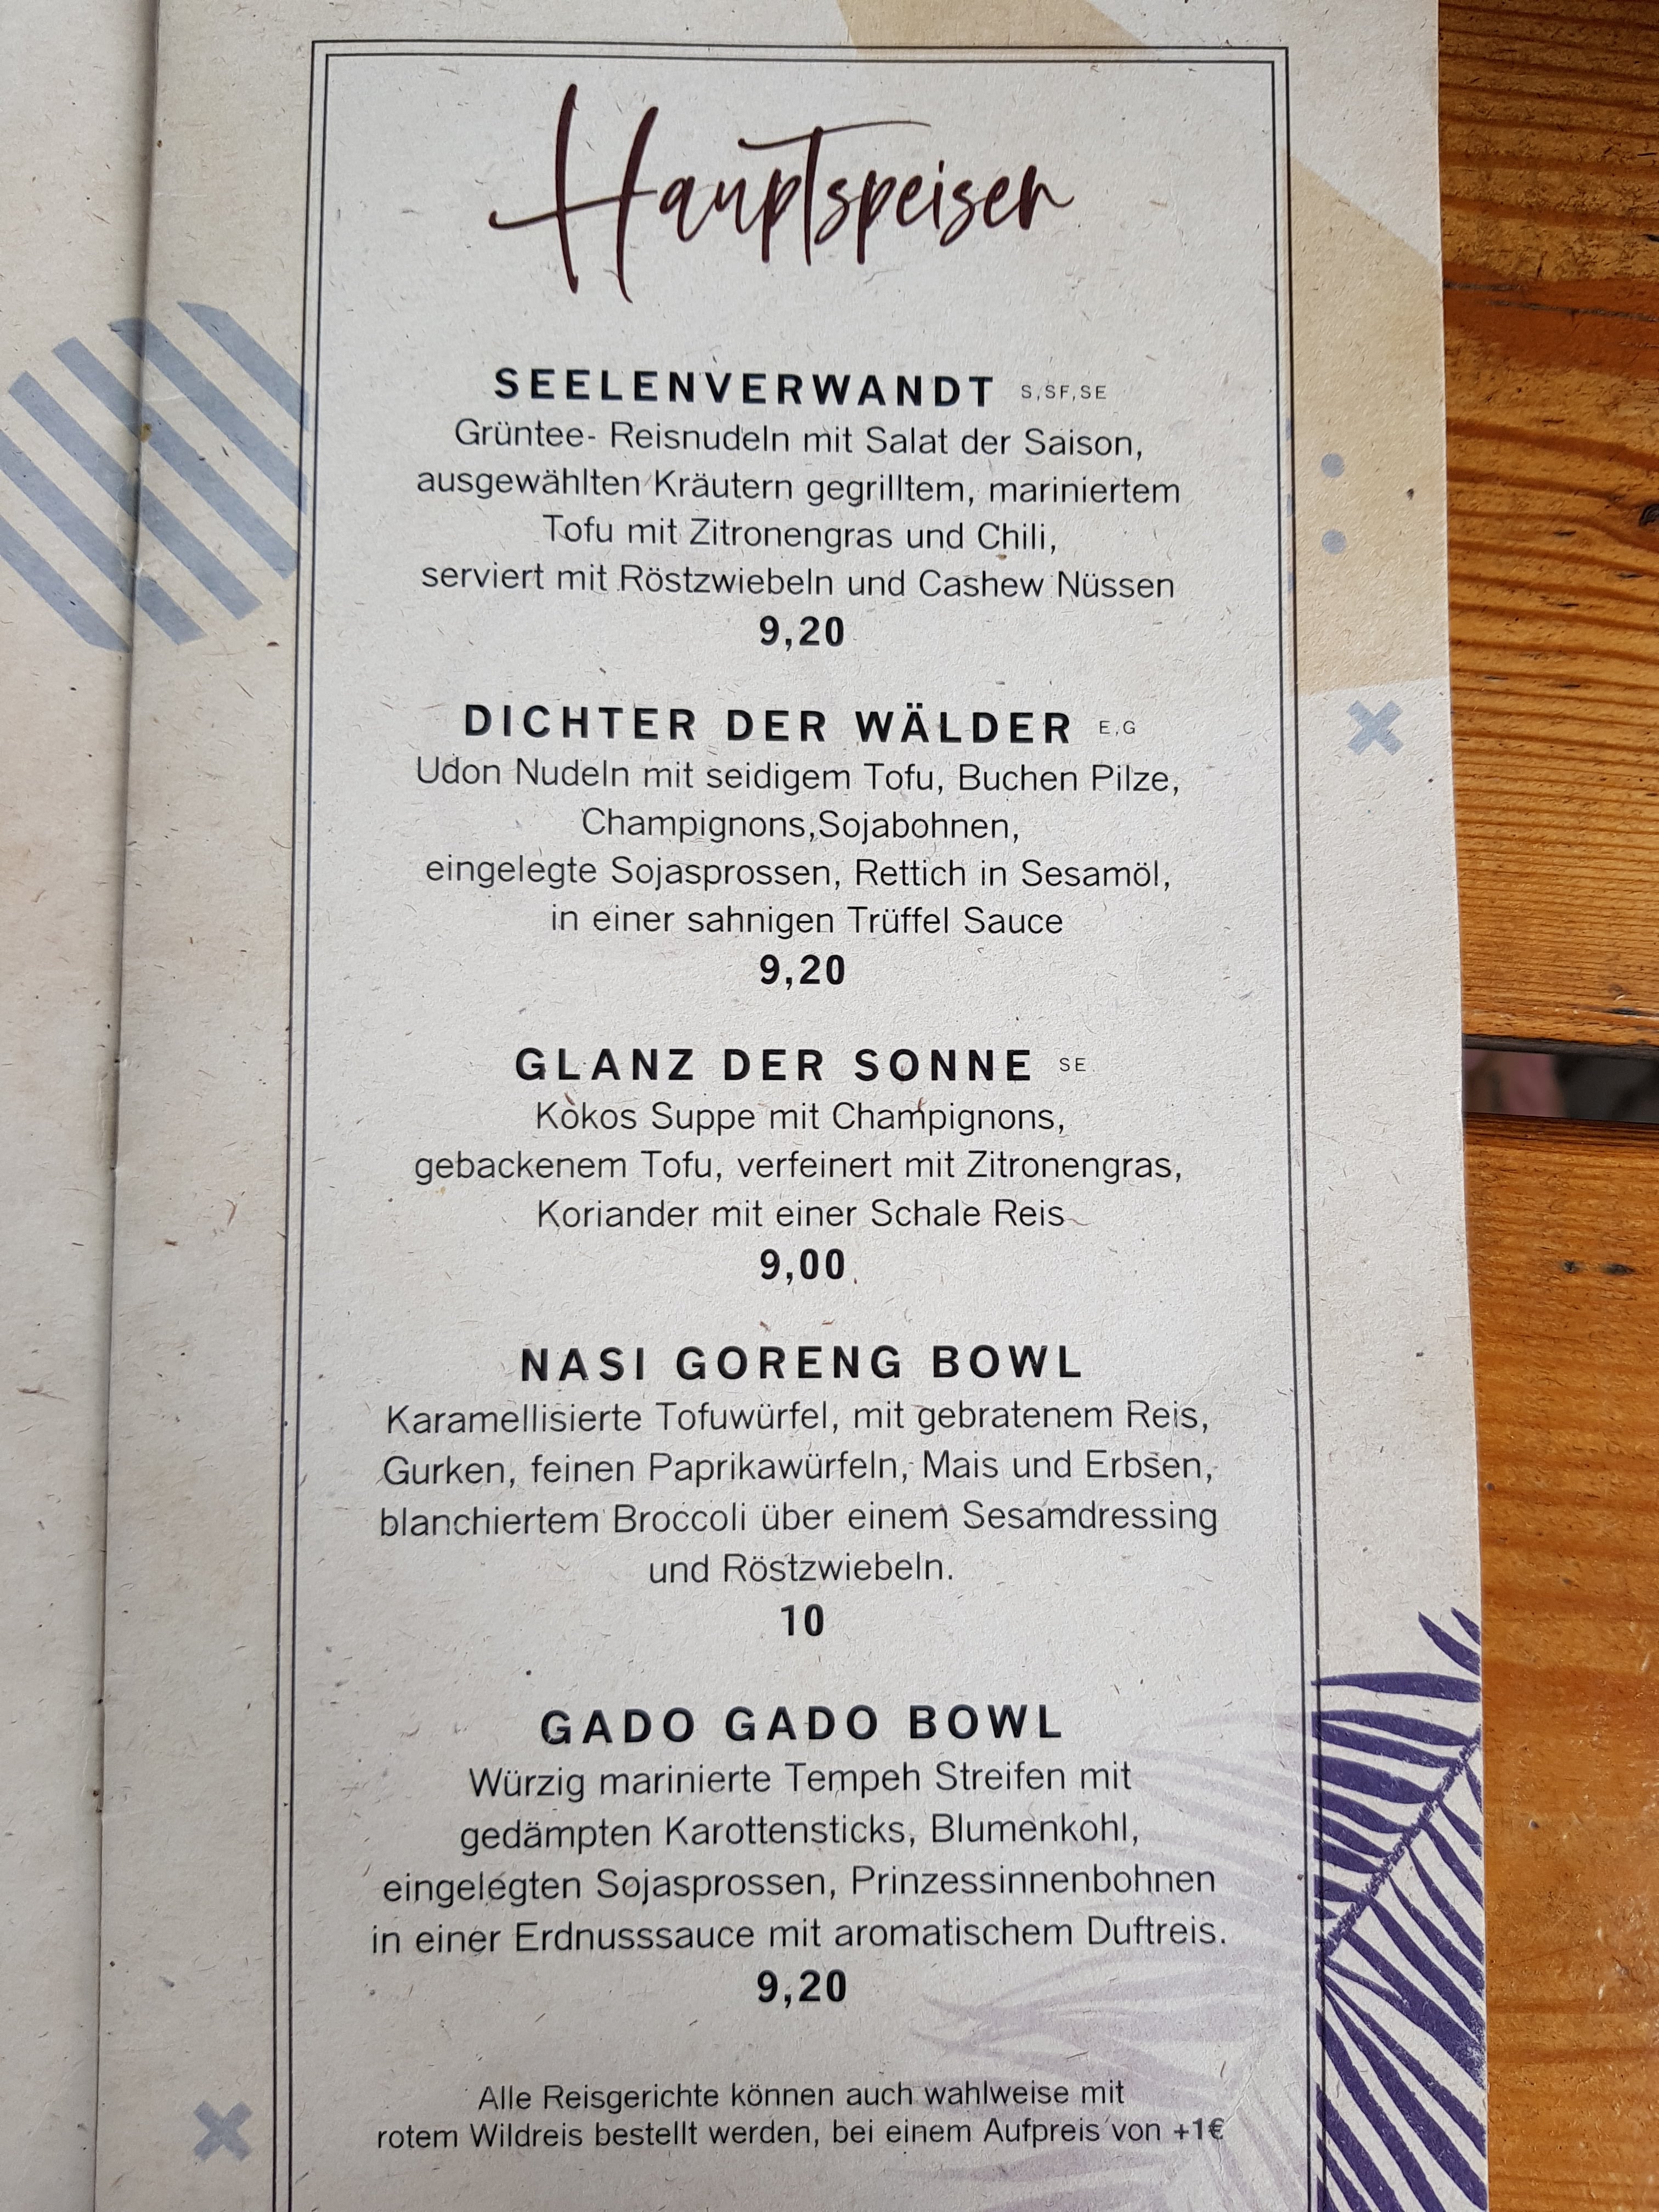 Hauptspeisen
SEELENVERWANDT S,SF,SE
Grüntee- Reisnudeln mit Salat der Saison,
ausgewählten Kräutern gegrilltem, mariniertem
Tofu mit Zitronengras und Chili,
serviert mit Röstzwiebeln und Cashew Nüssen
9,20
DICHTER DER WÄLDER E,G
Udon Nudeln mit seidigem Tofu, Buchen Pilze,
Champignons,Sojabohnen,
eingelegte Sojasprossen, Rettich in Sesamöl,
in einer sahnigen Trüffel Sauce
9,20
GLANZ DER SONNE SE
Kokos Suppe mit Champignons,
gebackenem Tofu, verfeinert mit Zitronengras,
Koriander mit einer Schale Reis
9,00
NASI GORENG BOWL
Karamellisierte Tofuwürfel, mit gebratenem Reis,
Gurken, feinen Paprikawürfeln, Mais und Erbsen,
blanchiertem Broccoli über einem Sesamdressing
und Röstzwiebeln.
10
GADO GADO BOWL
Würzig marinierte Tempeh Streifen mit
gedämpten Karottensticks, Blumenkohl,
eingelegten Sojasprossen, Prinzessinnenbohnen
in einer Erdnusssauce mit aromatischem Duftreis.
9,20
Alle Reisgerichte können auch wahlweise mit
rotem Wildreis bestellt werden, bei einem Aufpreis von +1€